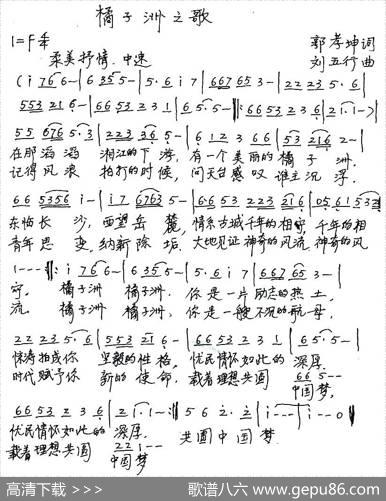 橘子洲之歌
1=F
柔美抒情.中速
郭孝坤词
刘五行曲
(i 76 6-|6 35 5-|5·6 i 7|667 65 3-|22 23 5·6|
553 21 6-|66 53 2 3 1|6 5·5-:‖66 53 2 3 6|2 1·1-)|
55 676 5·3|223 36 5-|6 1 2 3 66|53 216 2-|
在那滔滔 湘江的下游, 有一个美丽的橘子洲.
记得风浪 拍打的时候, 问天台感叹谁主沉浮.
东临长沙, 西望岳麓, 情系古城千年的相守, 千年的相
青年思变, 纳新除垢. 大地见证神奇的风流. 神奇的风
1---:‖i 76 6-|6 35 6-|5·6 i 7|667 65 3-|
守. 橘子洲 橘子洲. 你是一片励志的热土,
流. 橘子洲 橘子洲, 你是一艘不沉的航母,
22 23 5·6|553 21 6-|66 53 2 3 1|65·5-|
惊涛拍成你 坚毅的性格, 忧民情怀如此的 深厚.
时代赋予你 新的使命, 载着理想共圆
66 5--
中国梦,
66 53 2 3 6|2 1·1-:‖5 6 2·2|i---|i--0‖
忧民情怀如此的 深厚. 共圆中国梦
载着理想共圆
22 1--
中国梦
高清下载 >>>
歌谱八六 www.gepu86.com